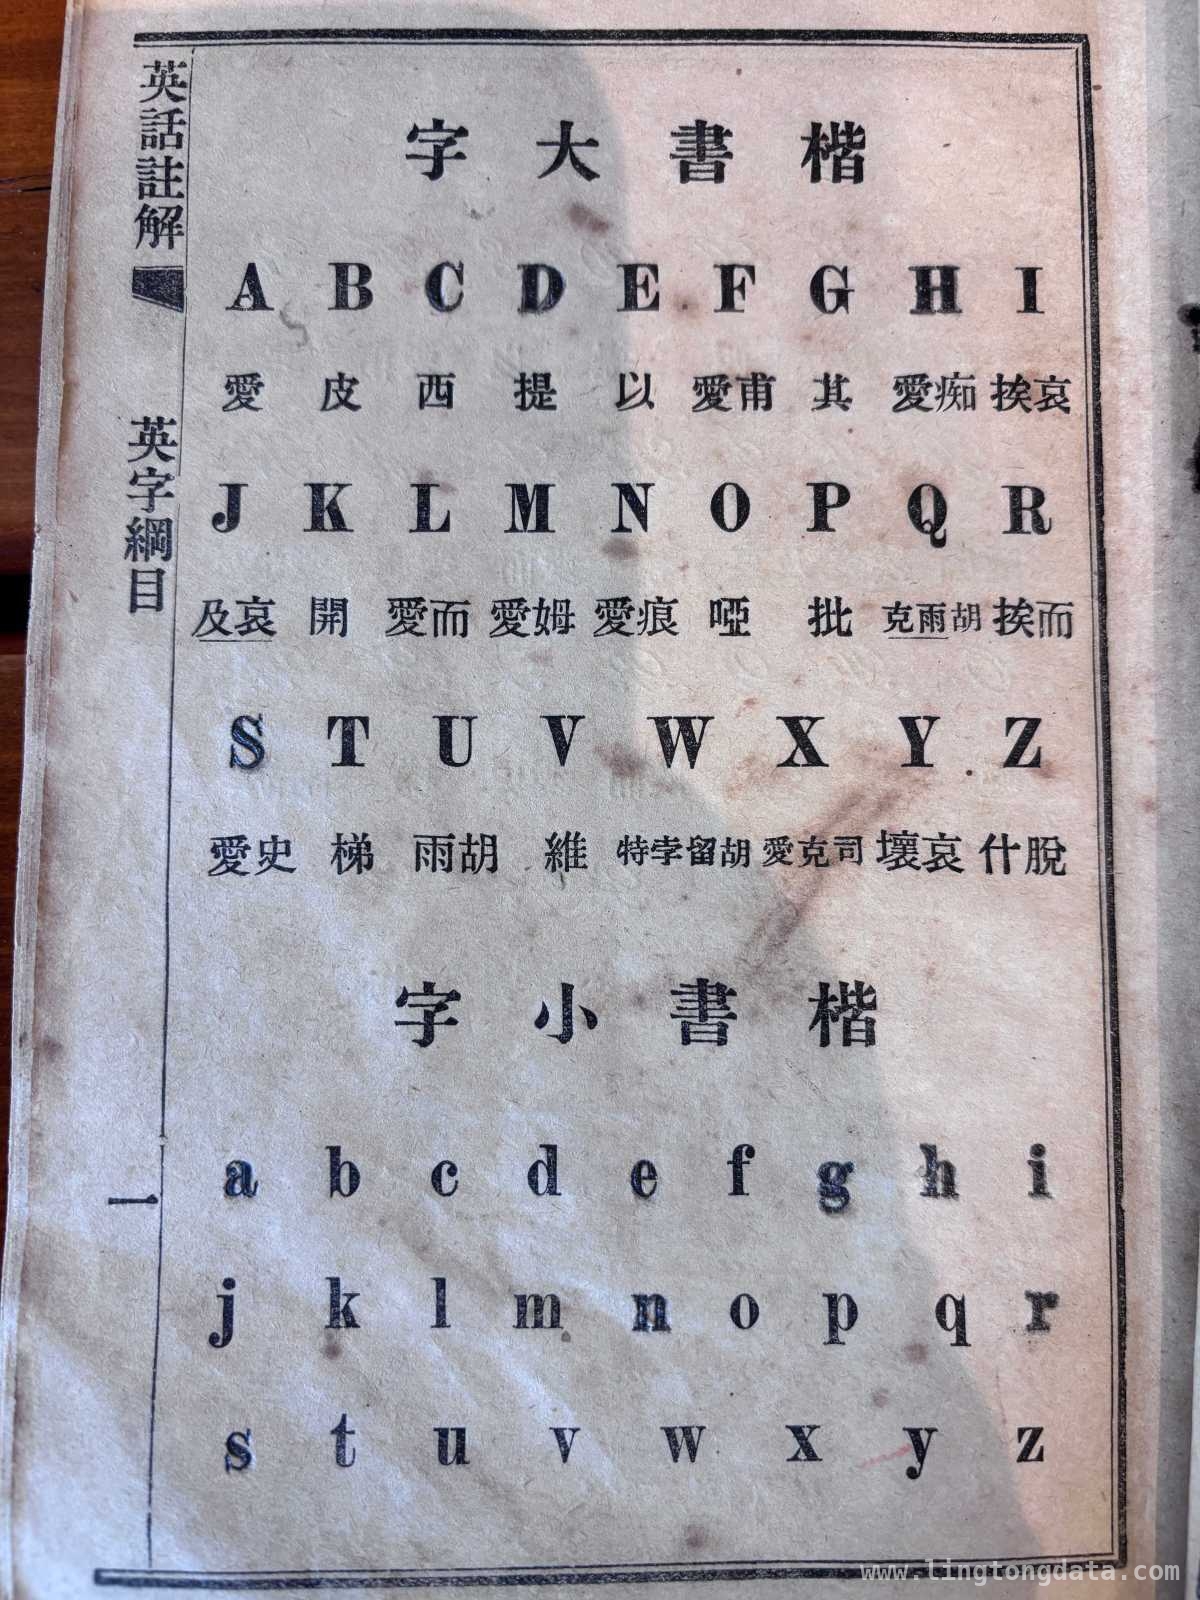 英話註解
英字綱目
一
字大書楷
A B C D E F G H I
愛 皮 西 提 以 愛甫 其 愛痴 挨哀
J K L M N O P Q R
及哀 開 愛而 愛姆 愛痕 啞 批 克雨胡 挨而
S T U V W X Y Z
愛史 梯 雨胡 維 特孛留胡 愛克司 壞哀 什脫
字小書楷
a b c d e f g h i
j k l m n o p q r
s t u v w x y z
www.lingtongdata.com